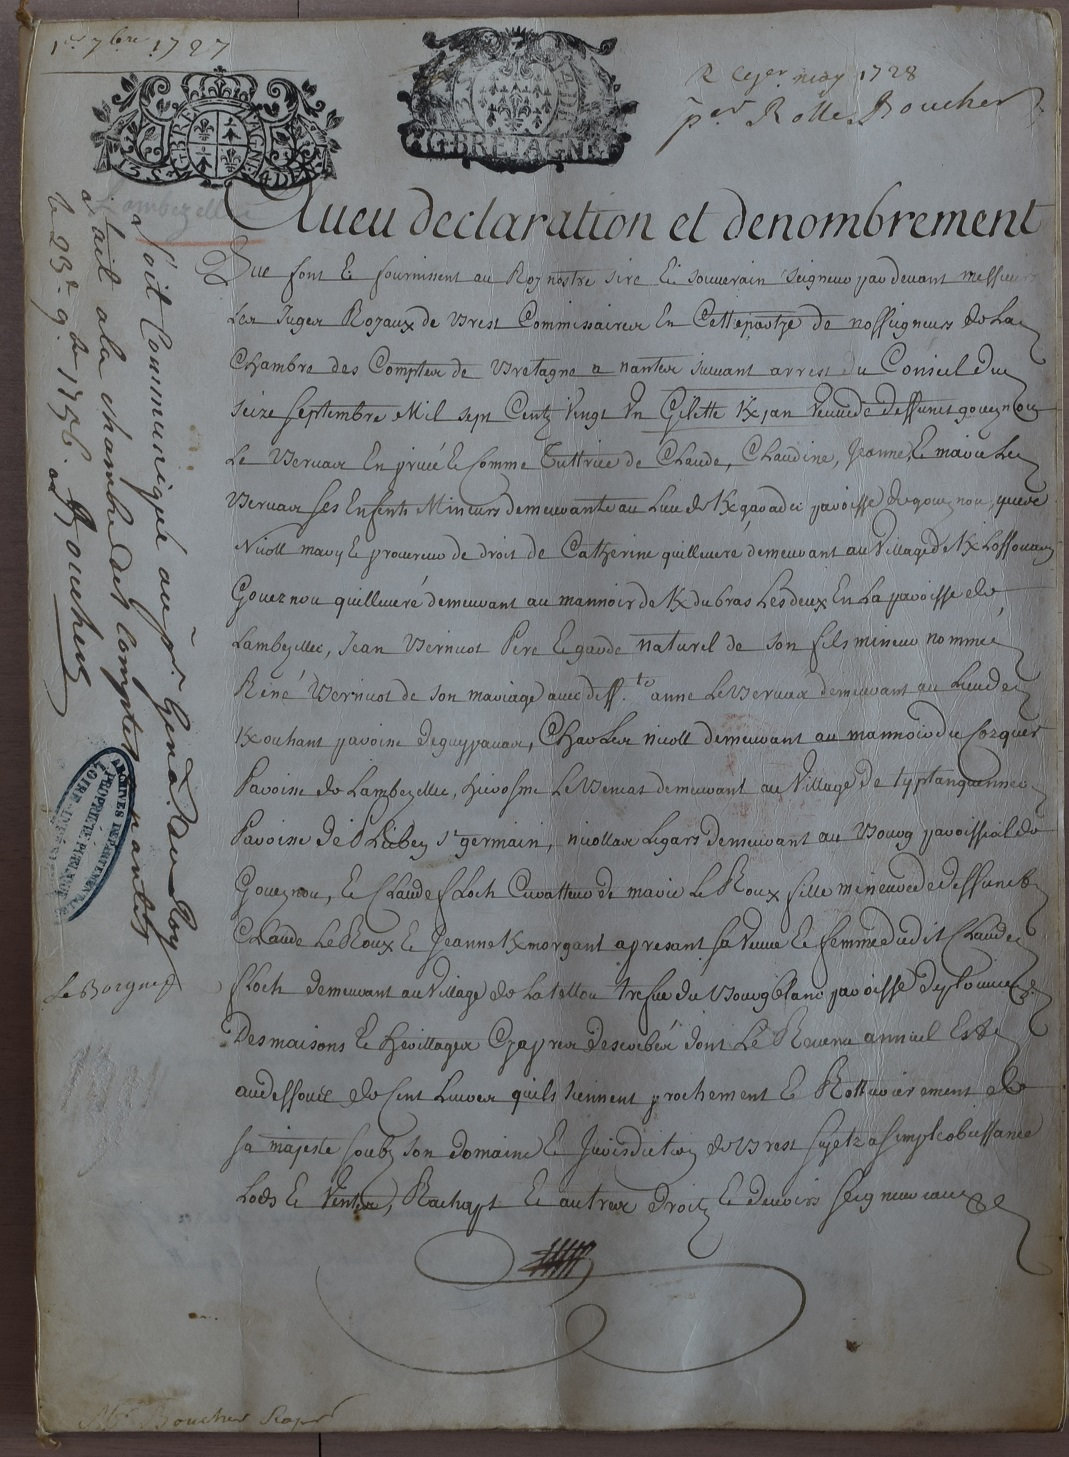 1er 7bre 1727
R may 1728
per Rolle Boucher
G BRETAGNE
BRETAGNE
Lambezellec
Aueu declaration et denombrement
Que font et fournissent au Roy nostre sire et souuerain seigneur par deuant messieurs
Les Juges Royaux de Brest Commissaires En Cette partye de nosseigneurs de La
Chambre des Comptes de Bretagne a nantes suiuant arrest du Conseil du
seize septembre Mil sept Centz Vingt Un Gilette Kjan veuue de deffunct gouesnou
Le Veruax En priué et Comme Tuttrice de Claude, Claudine, Jeanne, et marie Le
Veruax ses Enfents Mineurs demeurante au Lieu de parroisse de goueznou,
Nicoll mary et procureur de droit de Catherine quilleueré demeurant au Village de
Goueznou quilleueré demeurant au mannoir de K du bras Les deux En La parroisse de
Lambezellec, Jean Vernicot Pere et garde naturel de son fils mineur nommé
René Vernicot de son mariage auec deff.te anne Le Veruax demeurant au Lieu de
Kouhant paroisse de guypauax, Charles nicoll demeurant au mannoir du Cosquer
Paroisse de Lambezellec, hierosme Le demeurant au Village de
Paroisse de st germain, nicollas Ligars demeurant au Bourg parroissial de
Goueznou, et Claude fLoch Curatteur de marie Le Roux fille mineure de deffunct
Claude Le Roux et Jeanne Kmorgant apresant sa Veuue et femme dudit Claude
fLoch demeurant au Village de Latellou trefue du Bourgblanc parroisse de
Des maisons et heritages Cy apres describés dont Le Reuenu annuel Est
au dessous de Cent Liures quils tiennent prochement et Rotturierement de
sa majesté soubz son domaine et Jurisdiction de Brest sujetz a simple obeissance
Lods et Ventes, Rachapt et autres droitz et deuoirs seigneuriaux
soit Communiqué au pr. Genal. du Roy
fait a la chambre des comptes a nantes
le 23e 9bre 1756. Boucher
ARCHIVES DEPARTEMENTALES
PROPRIETE PUBLIQUE
Le Borgne
Mr Boucher Rapr